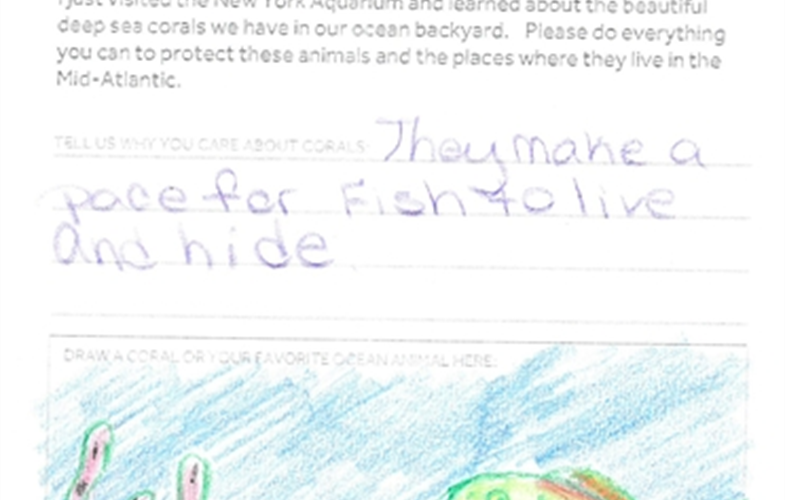 I just visited the New York Aquarium and learned about the beautiful
deep sea corals we have in our ocean backyard. Please do everything
you can to protect these animals and the places where they live in the
Mid-Atlantic.
TELL US WHY YOU CARE ABOUT CORALS: They make a
pace for Fish to live
and hide
DRAW A CORAL OR YOUR FAVORITE OCEAN ANIMAL HERE: